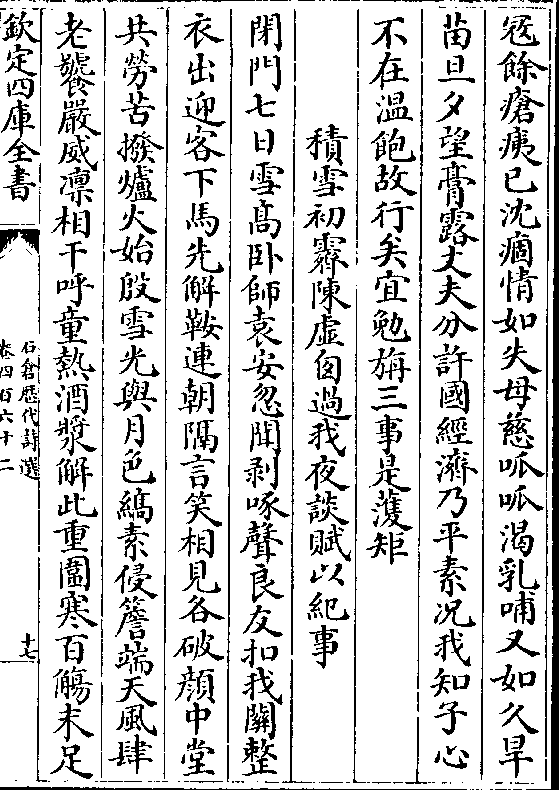 冦餘瘡痍已沈痼情如失母慈呱呱渇乳哺又如久旱
苗旦夕望膏露丈夫分許國經濟乃平素况我知子心
不在溫飽故行矣宜勉旃三事是蒦矩
積雪初霽陳虛囱過我夜談賦以紀事
閉門七日雪髙卧師袁安忽聞剥啄聲良友扣我闗整
衣出迎客下馬先解鞍連朝隔言笑相見各破顔中堂
共勞苦撥爐火始殷雪光與月色縞素侵簷端天風肆
老饕嚴威凛相干呼童熱酒漿解此重圍寒百觴未足
欽定四庫全書
石倉歴代詩選
卷四百六十二
十七